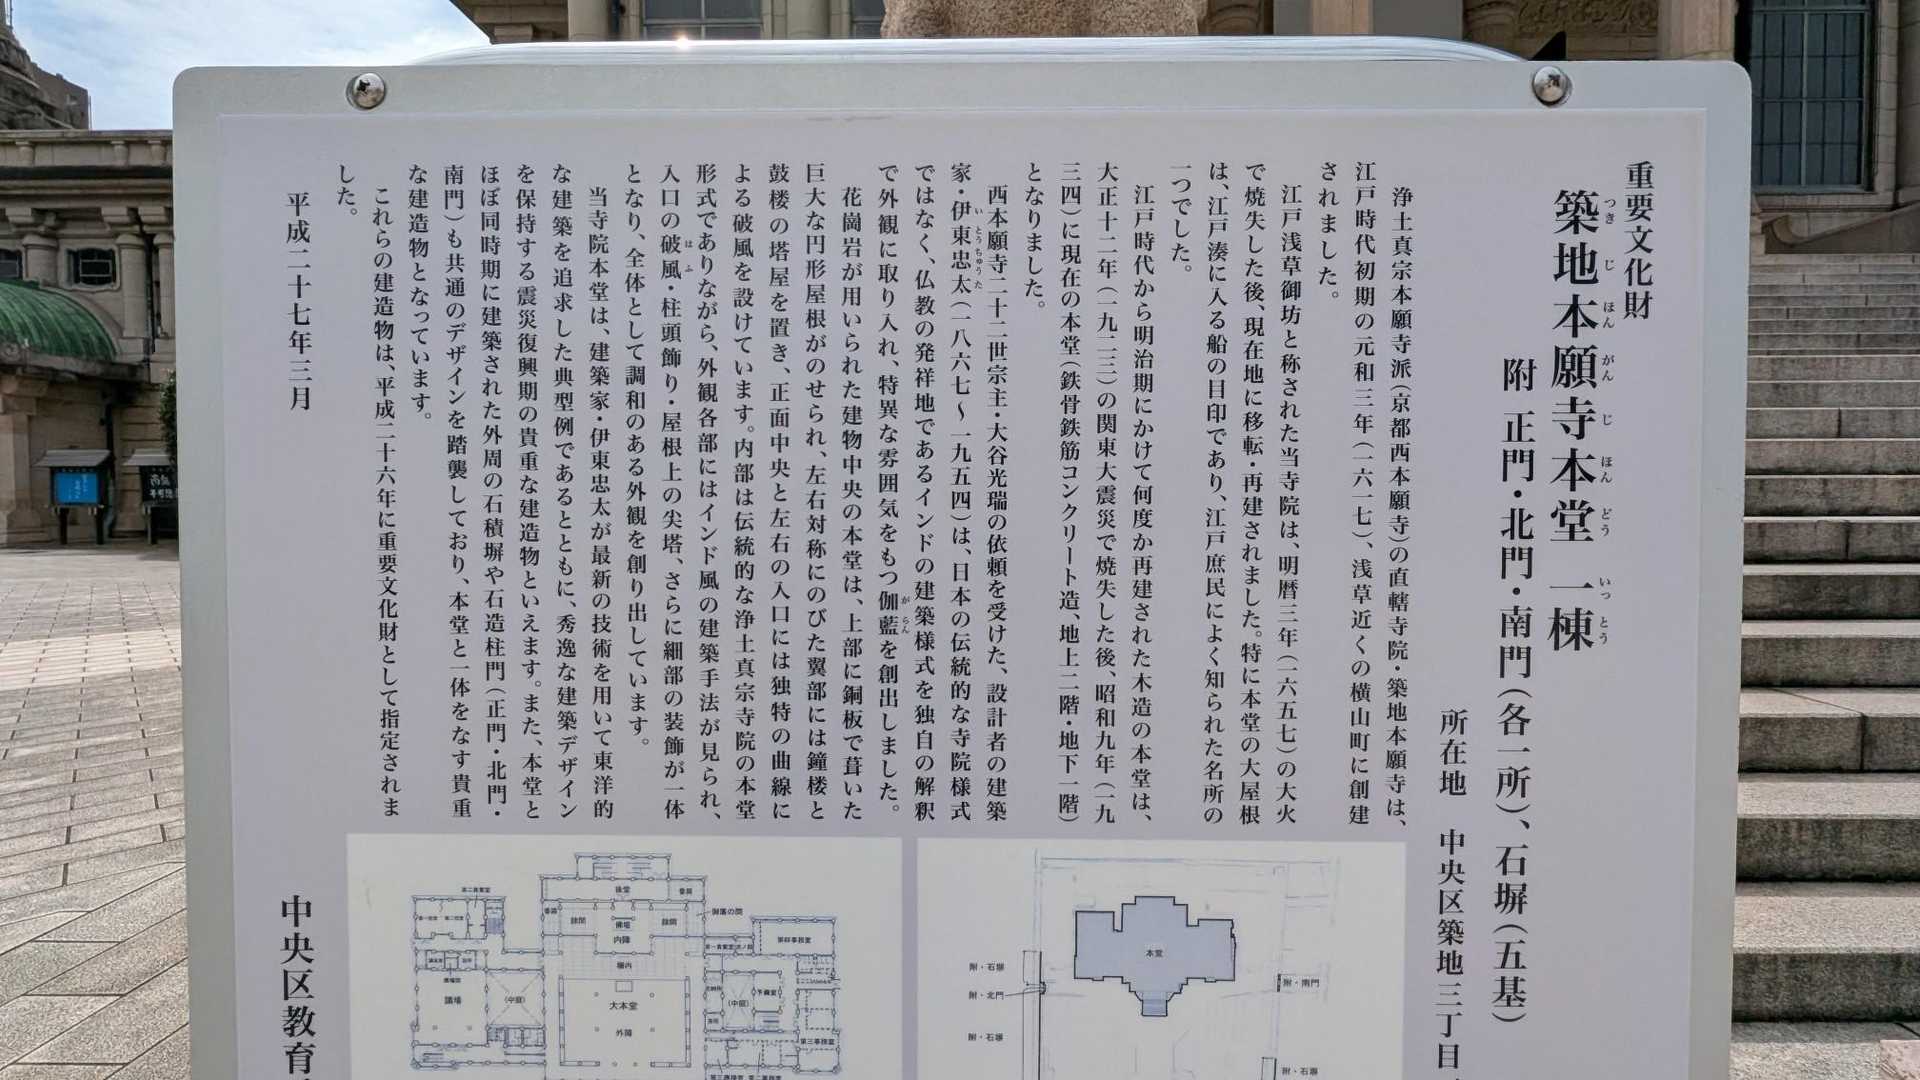 重要文化財
築地本願寺本堂 一棟
つきじほんがんじほんどう いっとう
附 正門・北門・南門(各一所)、石塀(五基)
所在地 中央区築地三丁目
浄土真宗本願寺派(京都西本願寺)の直轄寺院・築地本願寺は、
江戸時代初期の元和三年(一六一七)、浅草近くの横山町に創建
されました。
江戸浅草御坊と称された当寺院は、明暦三年(一六五七)の大火
で焼失した後、現在地に移転・再建されました。特に本堂の大屋根
は、江戸湊に入る船の目印であり、江戸庶民によく知られた名所の
一つでした。
江戸時代から明治期にかけて何度か再建された木造の本堂は、
大正十二年(一九二三)の関東大震災で焼失した後、昭和九年(一九
三四)に現在の本堂(鉄骨鉄筋コンクリート造、地上二階・地下一階)
となりました。
西本願寺二十二世宗主・大谷光瑞の依頼を受けた、設計者の建築
家・伊東忠太(一八六七〜一九五四)は、日本の伝統的な寺院様式
いとうちゅうた
ではなく、仏教の発祥地であるインドの建築様式を独自の解釈
で外観に取り入れ、特異な雰囲気をもつ伽藍を創出しました。
がらん
花崗岩が用いられた建物中央の本堂は、上部に銅板で葺いた
巨大な円形屋根がのせられ、左右対称にのびた翼部には鐘楼と
鼓楼の塔屋を置き、正面中央と左右の入口には独特の曲線に
よる破風を設けています。内部は伝統的な浄土真宗寺院の本堂
形式でありながら、外観各部にはインド風の建築手法が見られ、
入口の破風・柱頭飾り・屋根上の尖塔、さらに細部の装飾が一体
はふ
となり、全体として調和のある外観を創り出しています。
当寺院本堂は、建築家・伊東忠太が最新の技術を用いて東洋的
な建築を追求した典型例であるとともに、秀逸な建築デザイン
を保持する震災復興期の貴重な建造物といえます。また、本堂と
ほぼ同時期に建築された外周の石積塀や石造柱門(正門・北門・
南門)も共通のデザインを踏襲しており、本堂と一体をなす貴重
な建造物となっています。
これらの建造物は、平成二十六年に重要文化財として指定されま
した。
平成二十七年三月
中央区教育
後堂
番廊
番廊
御簾の間
餘間
佛壇
餘間
内陣
欄内
大本堂
外陣
講場
(中庭)
(中庭)
予備室
第三事務室
本堂
附・石塀
附・北門
附・石塀
附・南門
附・石塀